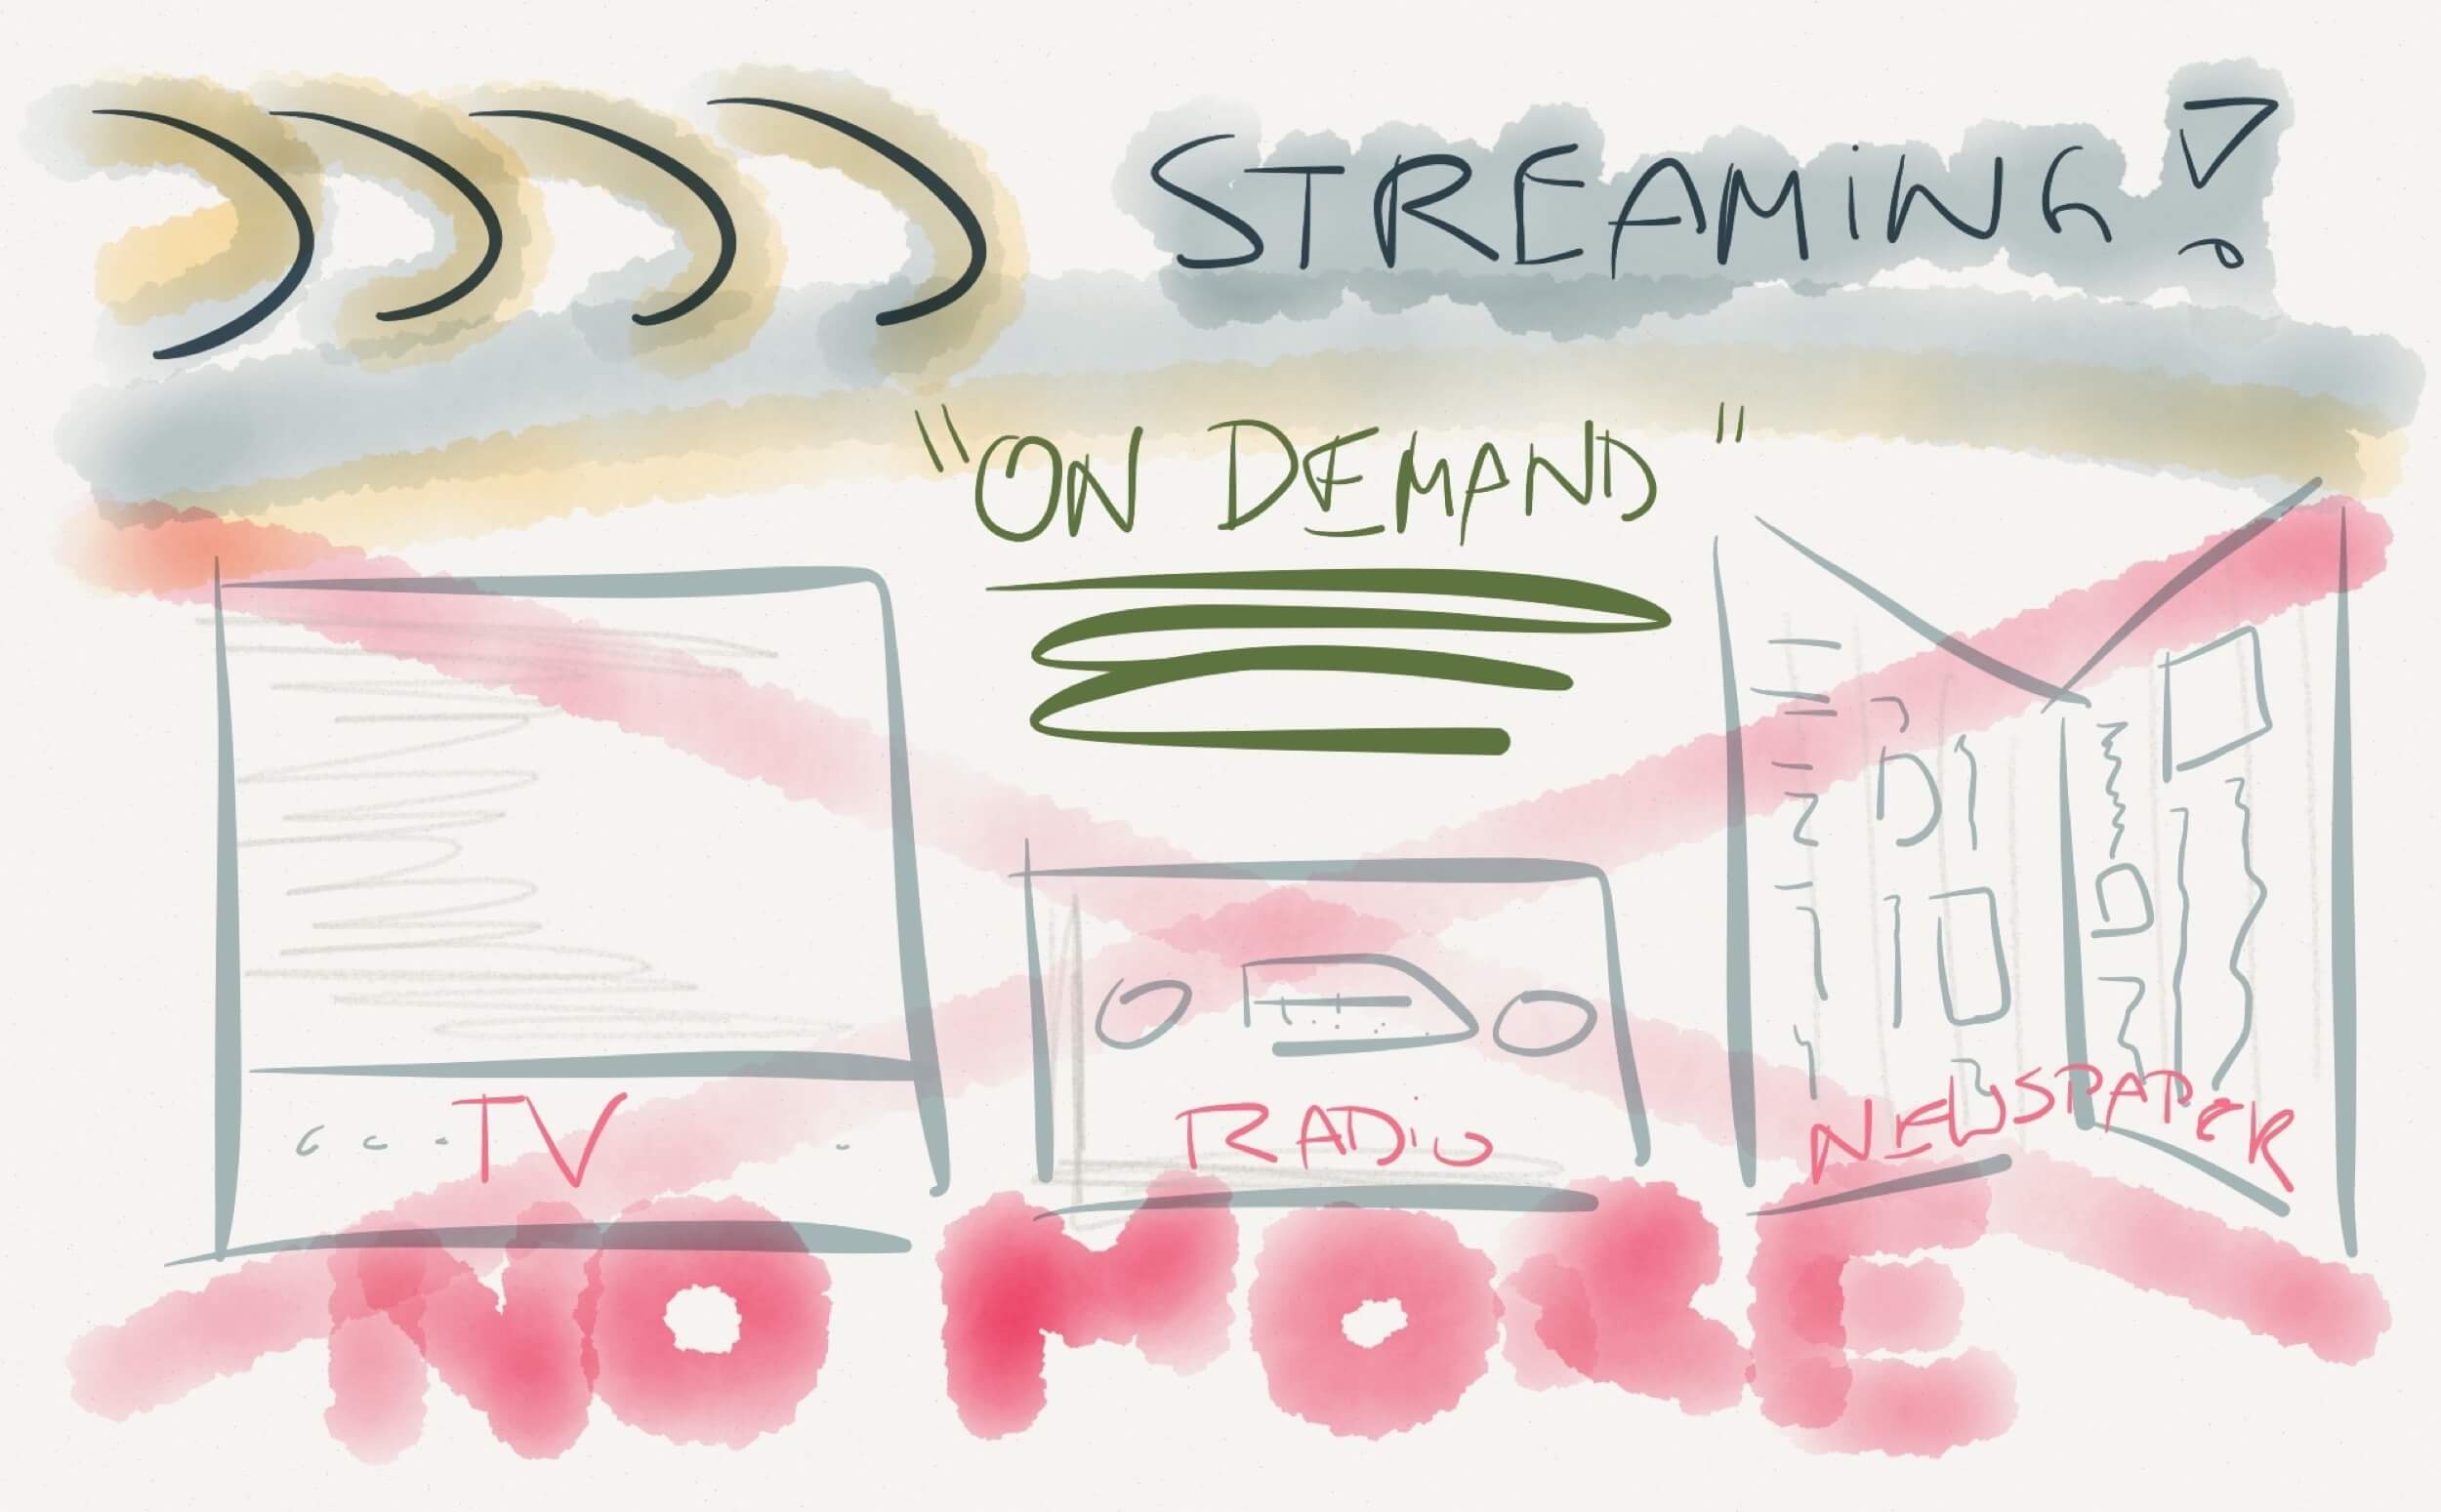 STREAMING!
"ON DEMAND"
TV
RADiO
NEWSPAPER
NO MORE